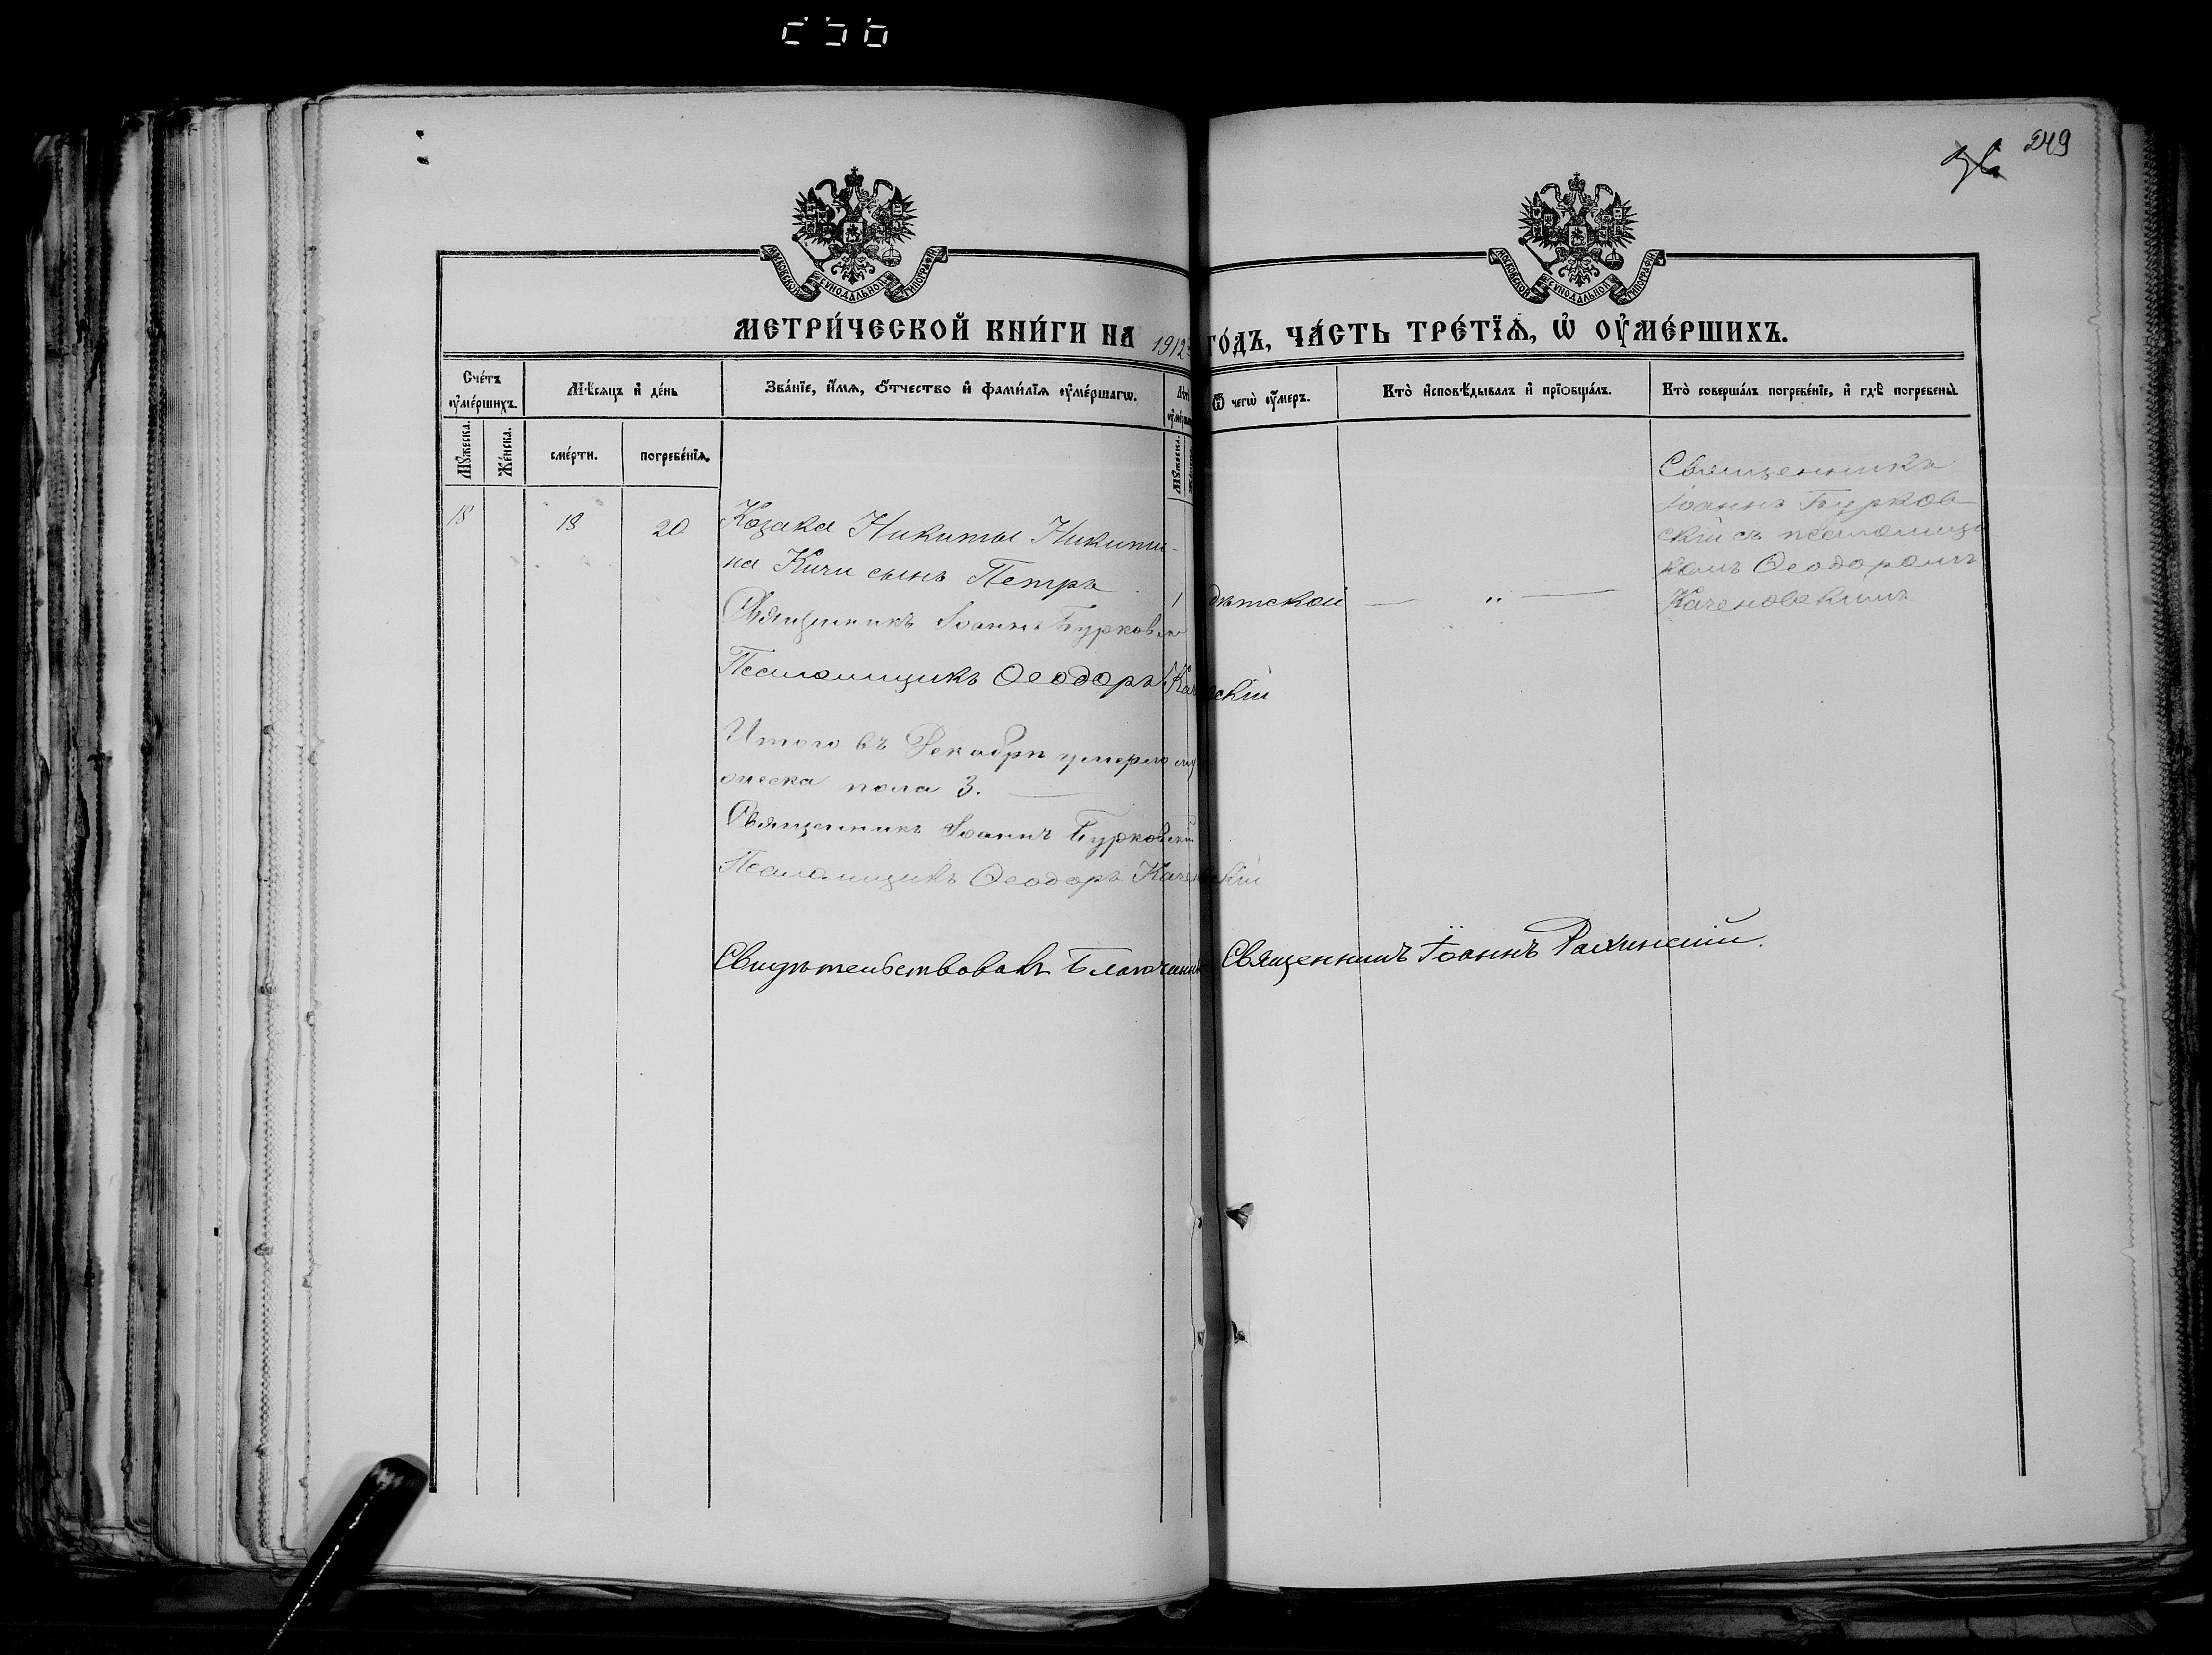 249
МОСКОВСКОЙ СУНОДАЛЬНОЙ ТИПОГРАФІИ
МОСКОВСКОЙ СУНОДАЛЬНОЙ ТИПОГРАФІИ
МЕТРИ́ЧЕСКОЙ КНИ́ГИ НА 1912 ГО́ДЪ, ЧА́СТЬ ТРЕ́ТЇѦ, Ѡ҆ ОУ҆МЕ́РШИХЪ.
Сче́тъ ᲂу҆ме́ршихъ.
Мѣ́сяцъ и҆ де́нь
Зва́нїе, и҆́мѧ, ѻ҆́тчество и҆ фами́лїѧ ᲂу҆ме́ршагѡ.
Ѿ чегѡ̀ ᲂу҆́меръ.
Кто̀ и҆сповѣ́дывалъ и҆ прїѻбща́лъ.
Кто̀ соверша́лъ погребе́нїе, и҆ гдѣ̀ погребены̀.
Мꙋ́жеска.
Же́нска.
сме́рти.
погребе́нїѧ.
Мꙋ́жеска.
18 18 20 Козака Никиты Никити-
на Кичи сынъ Петръ
1 дѣтской — „ —
Священникъ
Іоаннъ Бурков
скій съ псаломщи
комъ Ѳеодоромъ
Каченовскимъ
Священникъ Іоаннъ Бурковскій
Псаломщикъ Ѳеодоръ Каченовскій
Итого въ Декабрѣ умерло му
жеска пола 3.
Священникъ Іоаннъ Бурковскій
Псаломщикъ Ѳеодоръ Каченовскій
Свидѣтельствовалъ Благочинный Священникъ Іоаннъ